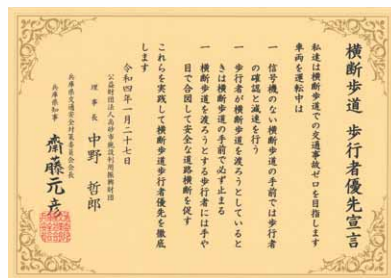 横断歩道 歩行者優先宣言
私達は横断歩道での交通事故ゼロを目指します
車両を運転中は
一 信号機のない横断歩道の手前では歩行者
の確認と減速を行う
一 歩行者が横断歩道を渡ろうとしていると
きは横断歩道の手前で必ず止まる
一 横断歩道を渡ろうとする歩行者には手や
目で合図して安全な道路横断を促す
これらを実践して横断歩道歩行者優先を徹底
します
令和四年一月二十七日
公益財団法人高砂市施設利用振興財団
理事長 中野 哲郎
兵庫県交通安全対策委員会会長
兵庫県知事 齋藤元彦